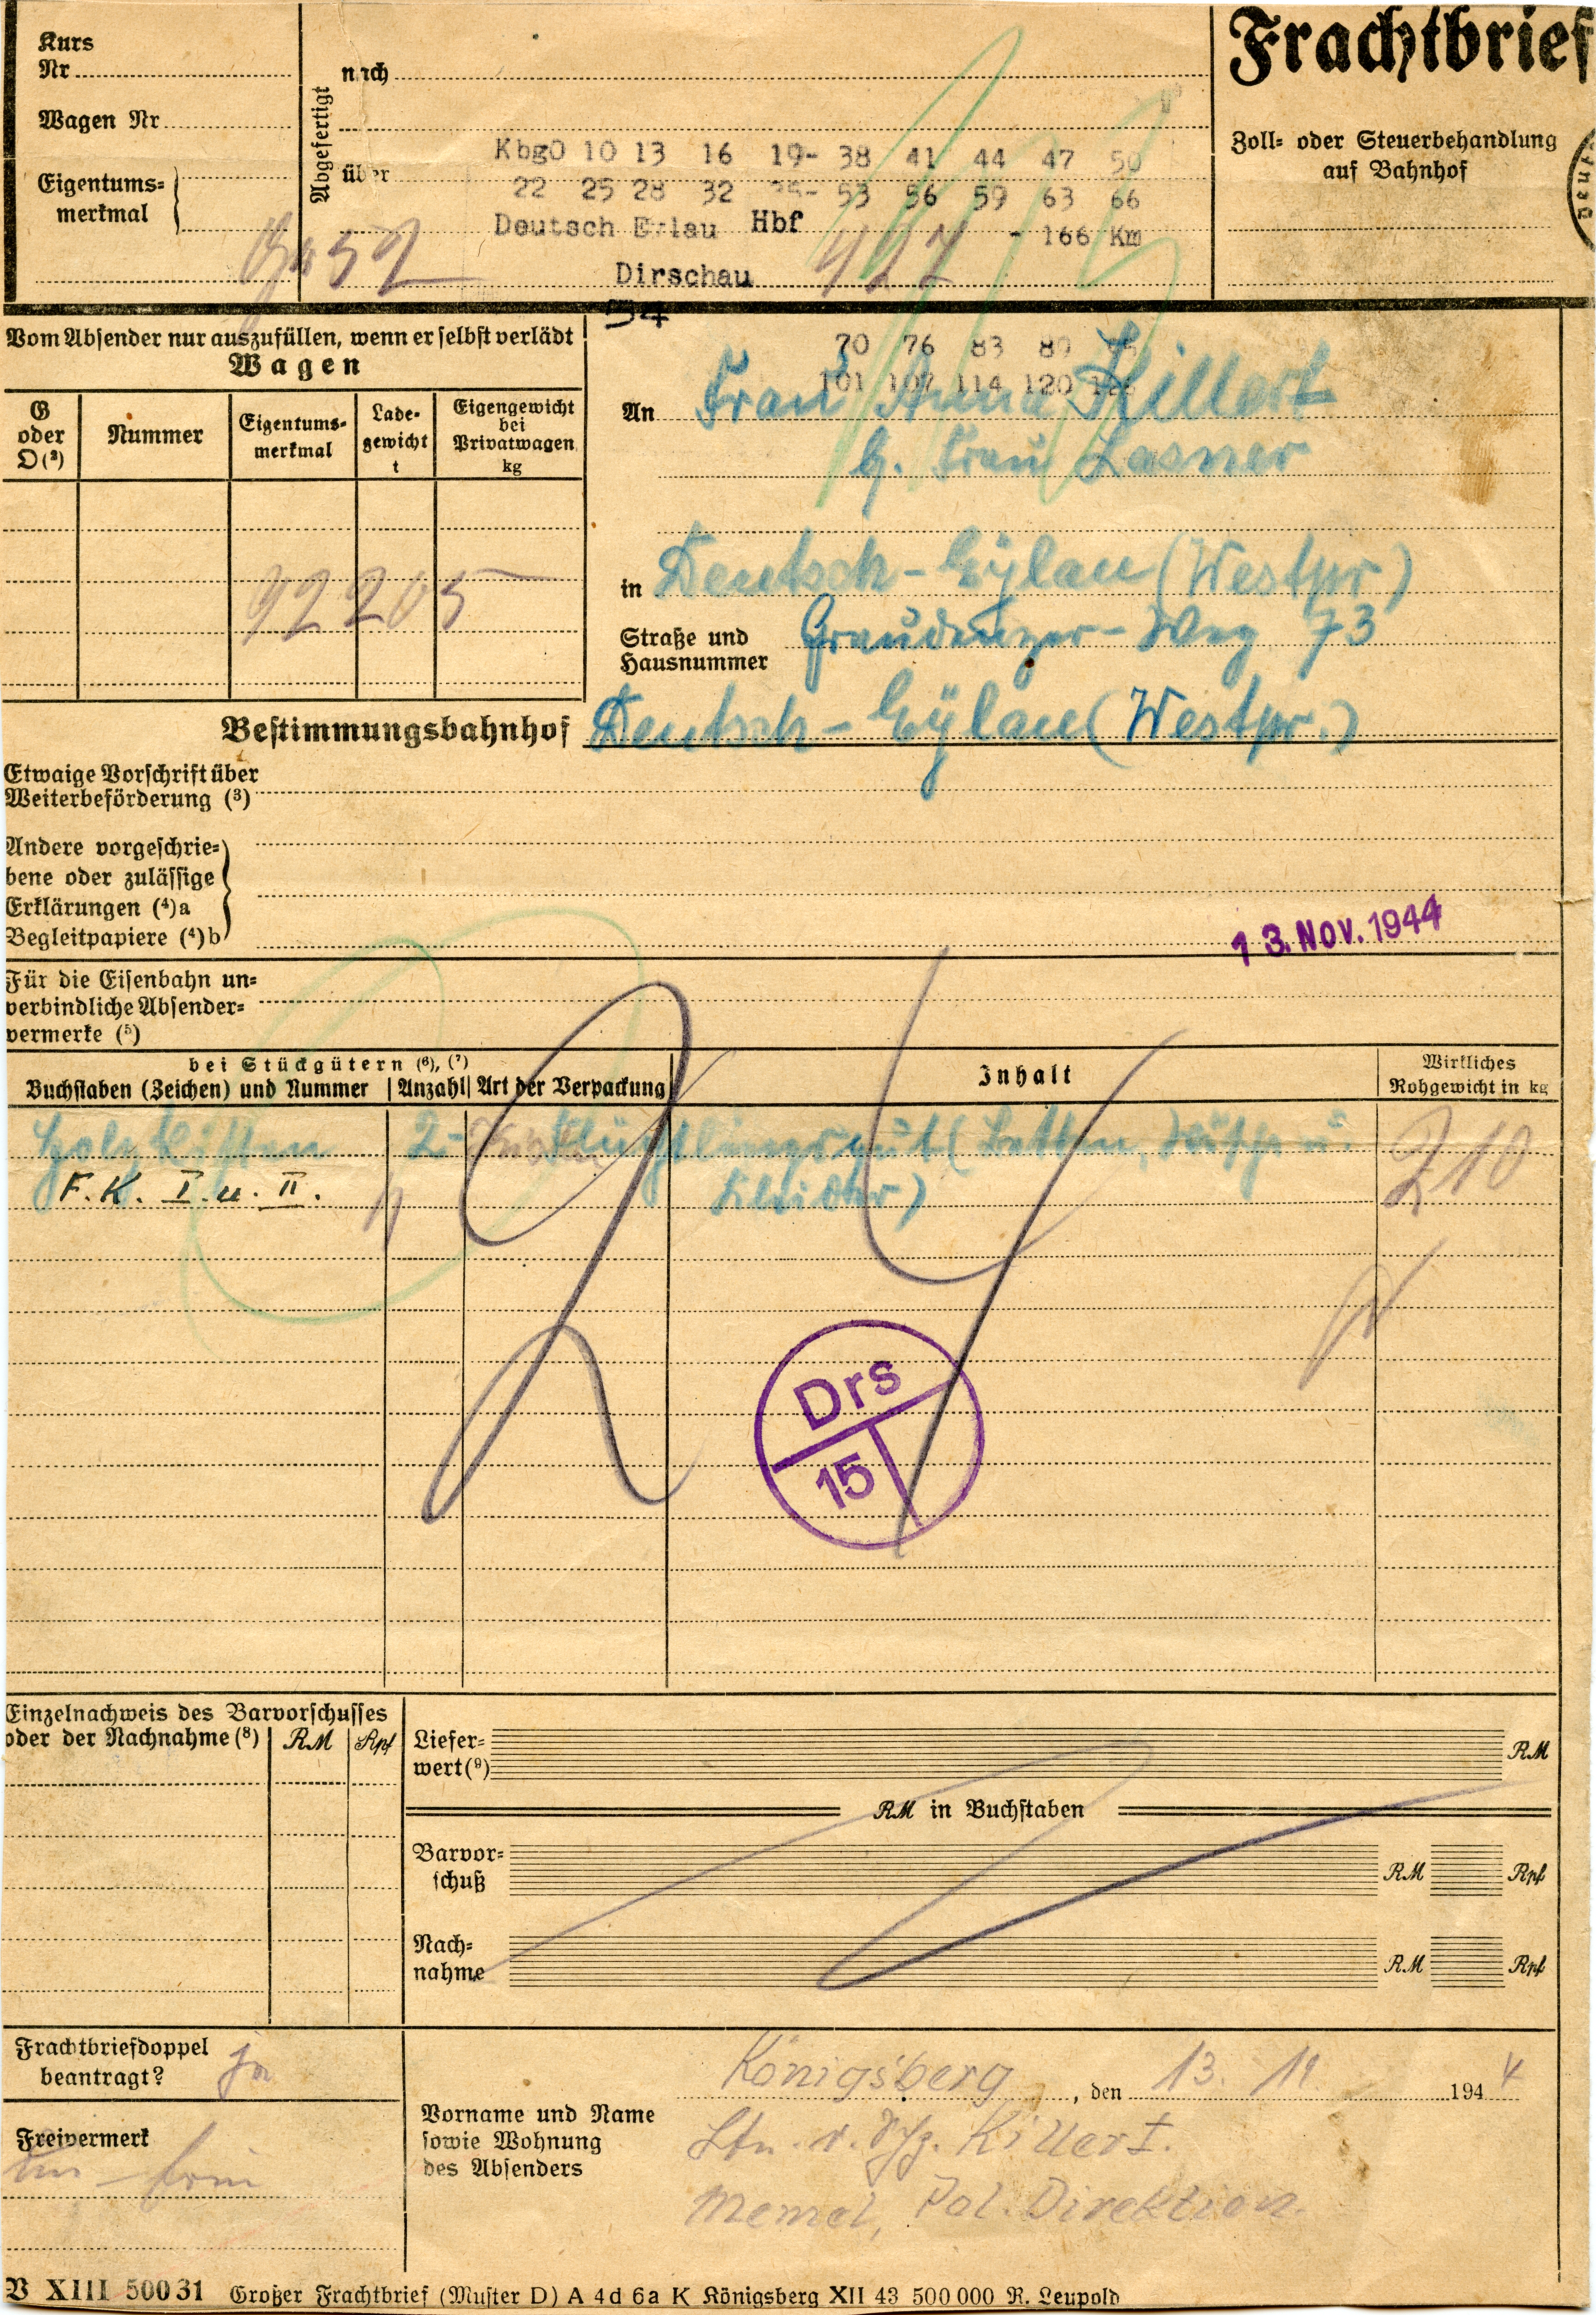 Kurs
Nr
Wagen Nr
Eigentums=
merkmal
Abgefertigt
nach
über
KbgO 10 13 16 19- 38 41 44 47 50
22 25 28 32 35- 53 56 59 63 66
Deutsch Eylau Hbf - 166 Km
Dirschau
54
70 76 83 89
101 107 114 120
Frachtbrief
Zoll= oder Steuerbehandlung
auf Bahnhof
Vom Absender nur auszufüllen, wenn er selbst verlädt
Wagen
G oder O (²)
Nummer
Eigentums-
merkmal
Lade-
gewicht
t
Eigengewicht
bei
Privatwagen
kg
92205
An Frau Anna Killert
b. Frau Lasner
in Deutsch-Eylau (Westpr)
Straße und
Hausnummer Graudenzer-Weg 73
Bestimmungsbahnhof Deutsch-Eylau (Westpr.)
Etwaige Vorschrift über
Weiterbeförderung (³)
Andere vorgeschrie=
bene oder zulässige
Erklärungen (⁴)a
Begleitpapiere (⁴)b
13. NOV. 1944
Für die Eisenbahn un=
verbindliche Absender=
vermerke (⁵)
bei Stückgütern (⁶), (⁷)
Buchstaben (Zeichen) und Nummer Anzahl Art der Verpackung
Inhalt
Wirkliches
Rohgewicht in kg
Holzkisten 2 Flüchtlingsgut (Betten, Wäsche u. 210
F. K. I u. II. Kleider)
Drs
15
Einzelnachweis des Barvorschusses
oder der Nachnahme (⁸) RM Rpf
Liefer=
wert (⁹) RM
RM in Buchstaben
Barvor=
schuß RM Rpf
Nach=
nahme RM Rpf
Frachtbriefdoppel
beantragt? ja
Freivermerk
Königsberg, den 13. 11. 1944
Vorname und Name
sowie Wohnung
des Absenders
Ltn. d. Killert.
Memel, Pol. Direktion.
V XIII 500 31 Großer Frachtbrief (Muster D) A 4d 6a K Königsberg XII 43 500 000 R. Leupold